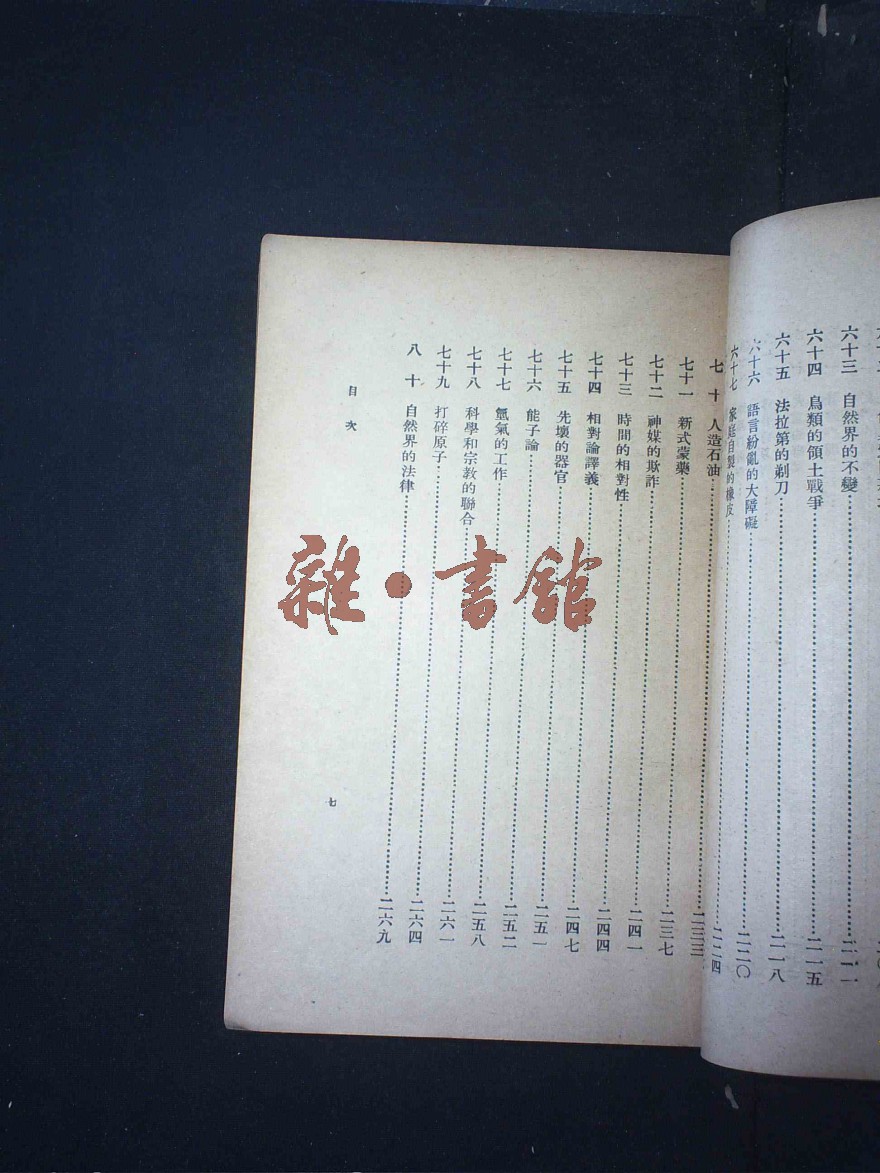 六十三 自然界的不變……二一一
六十四 鳥類的領土戰爭……二一五
六十五 法拉第的剃刀……二一八
六十六 語言紛亂的大障礙……二二〇
六十七 家庭自製的橡皮……二二四
七十 人造石油……二三三
七十一 新式蒙藥……二三七
七十二 神媒的欺詐……二四一
七十三 時間的相對性……二四四
七十四 相對論譯義……二四七
七十五 先壞的器官……二五一
七十六 能子論……二五二
七十七 氫氣的工作……二五八
七十八 科學和宗教的聯合……二六一
七十九 打碎原子……二六四
八十 自然界的法律……二六九
目次
七
雜·書館